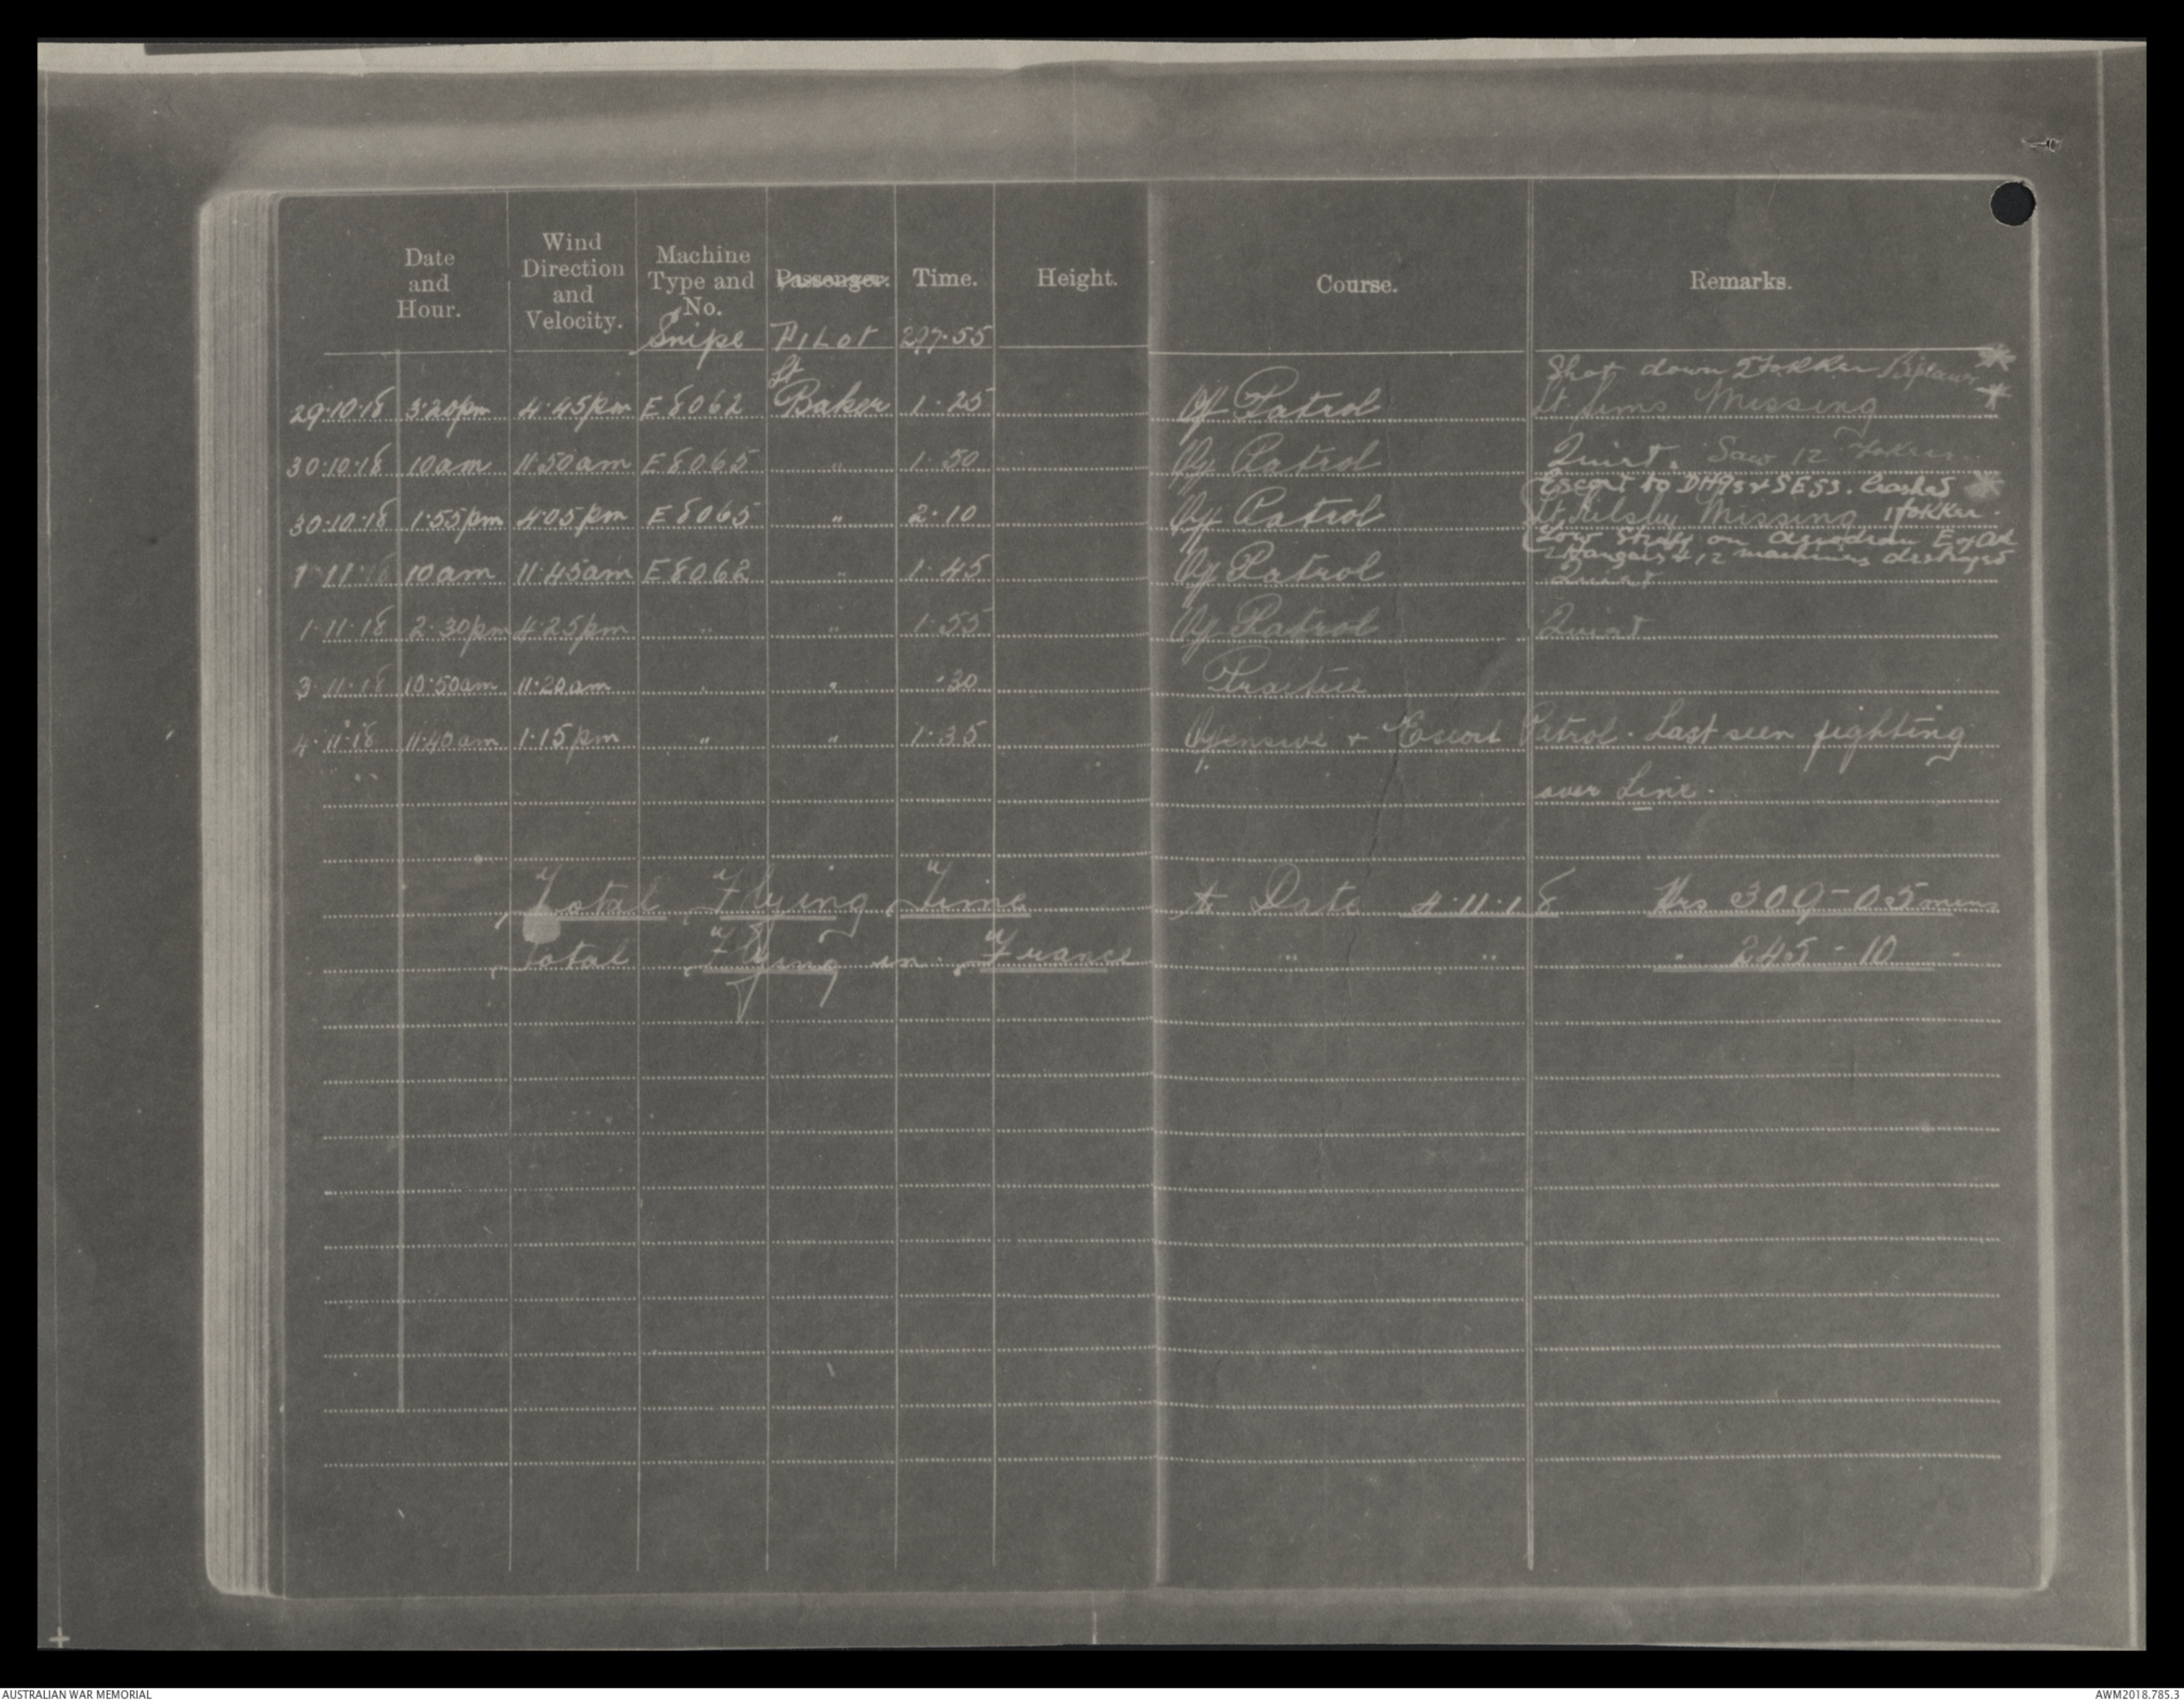 Date and Hour. Wind Direction and Velocity. Machine Type and No. Passenger. Time. Height. Course. Remarks.
Snipe PILOT 297.55
Shot down 2 Fokker Biplanes *
29.10.18 3.20pm 4.45pm E8062 Lt Baker 1.25 Off Patrol Lt Sims Missing *
30.10.18 10am 11.50am E8065 " 1.50 Off Patrol Quiet. Saw 12 Fokkers.
Escort to DH9s & SE5s. Crashed *
30.10.18 1.55pm 4.05pm E8065 " 2.10 Off Patrol Lt Kilsby Missing 1 Fokker.
Low Straff on Aerodrome E of Ath
2 Hangars & 12 machines destroyed
1.11.18 10am 11.45am E8062 " 1.45 Off Patrol Quiet
1.11.18 2.30pm 4.25pm " " 1.55 Off Patrol Quiet
3.11.18 10.50am 11.20am " " .30 Practice
4.11.18 11.40am 1.15pm " " 1.35 Offensive + Escort Patrol. Last seen fighting
over Line.
Total Flying Time to Date 4.11.18 Hrs 309-05 mins
Total Flying in France " " " 245-10
AUSTRALIAN WAR MEMORIAL AWM2018.785.3